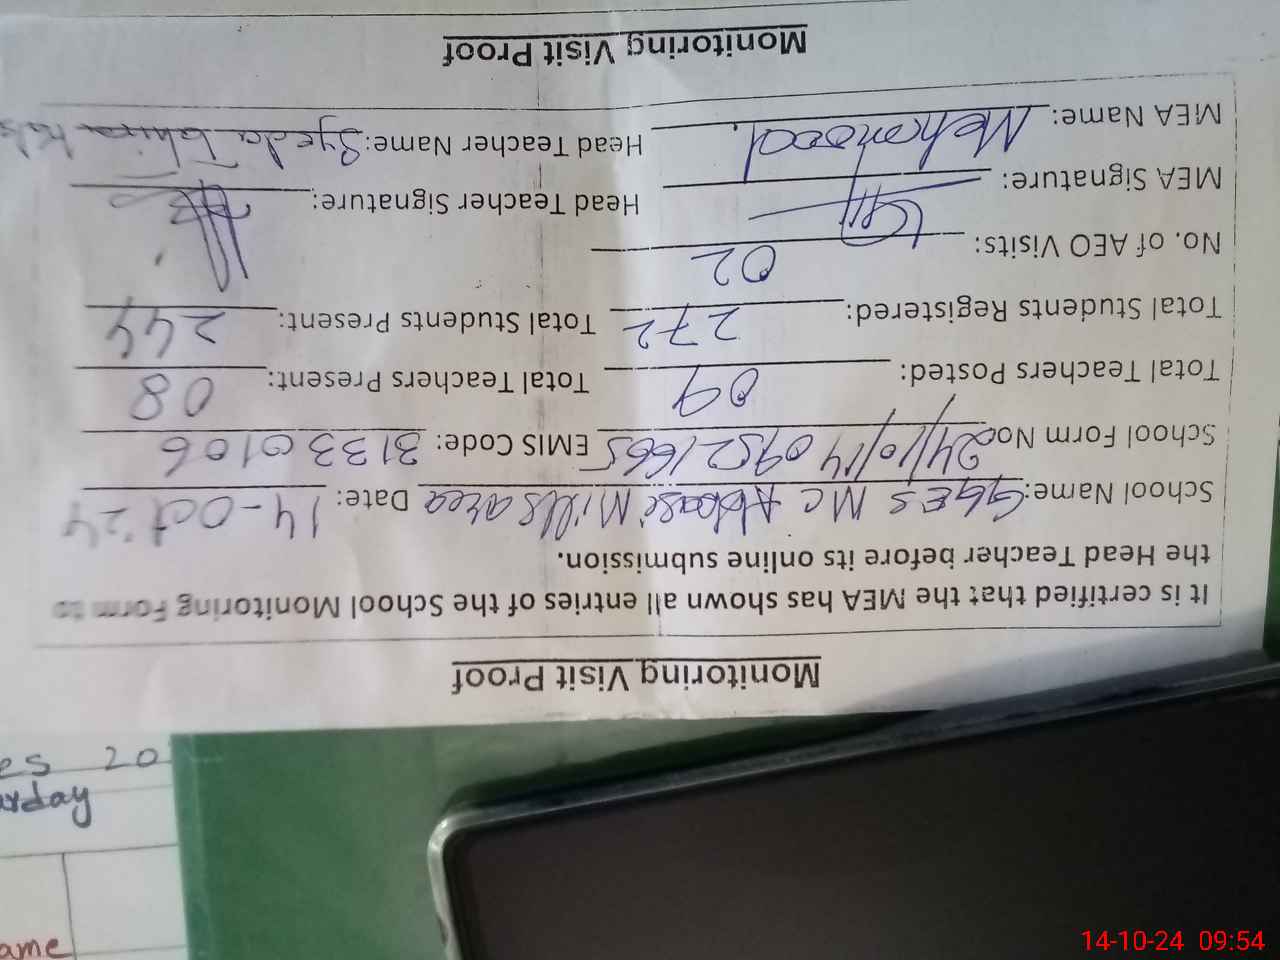 Monitoring Visit Proof
It is certified that the MEA has shown all entries of the School Monitoring Form to
the Head Teacher before its online submission.
School Name: GGES MC Abbasi Mills area Date: 14-Oct'24
School Form No 24/10/14 09521665 EMIS Code: 31330106
Total Teachers Posted: 09 Total Teachers Present: 08
Total Students Registered: 272 Total Students Present: 244
No. of AEO Visits: 02
MEA Signature: Head Teacher Signature:
MEA Name: Mehmood Head Teacher Name: Syeda Tahira
Monitoring Visit Proof
es 20
urday
ame
14-10-24 09:54